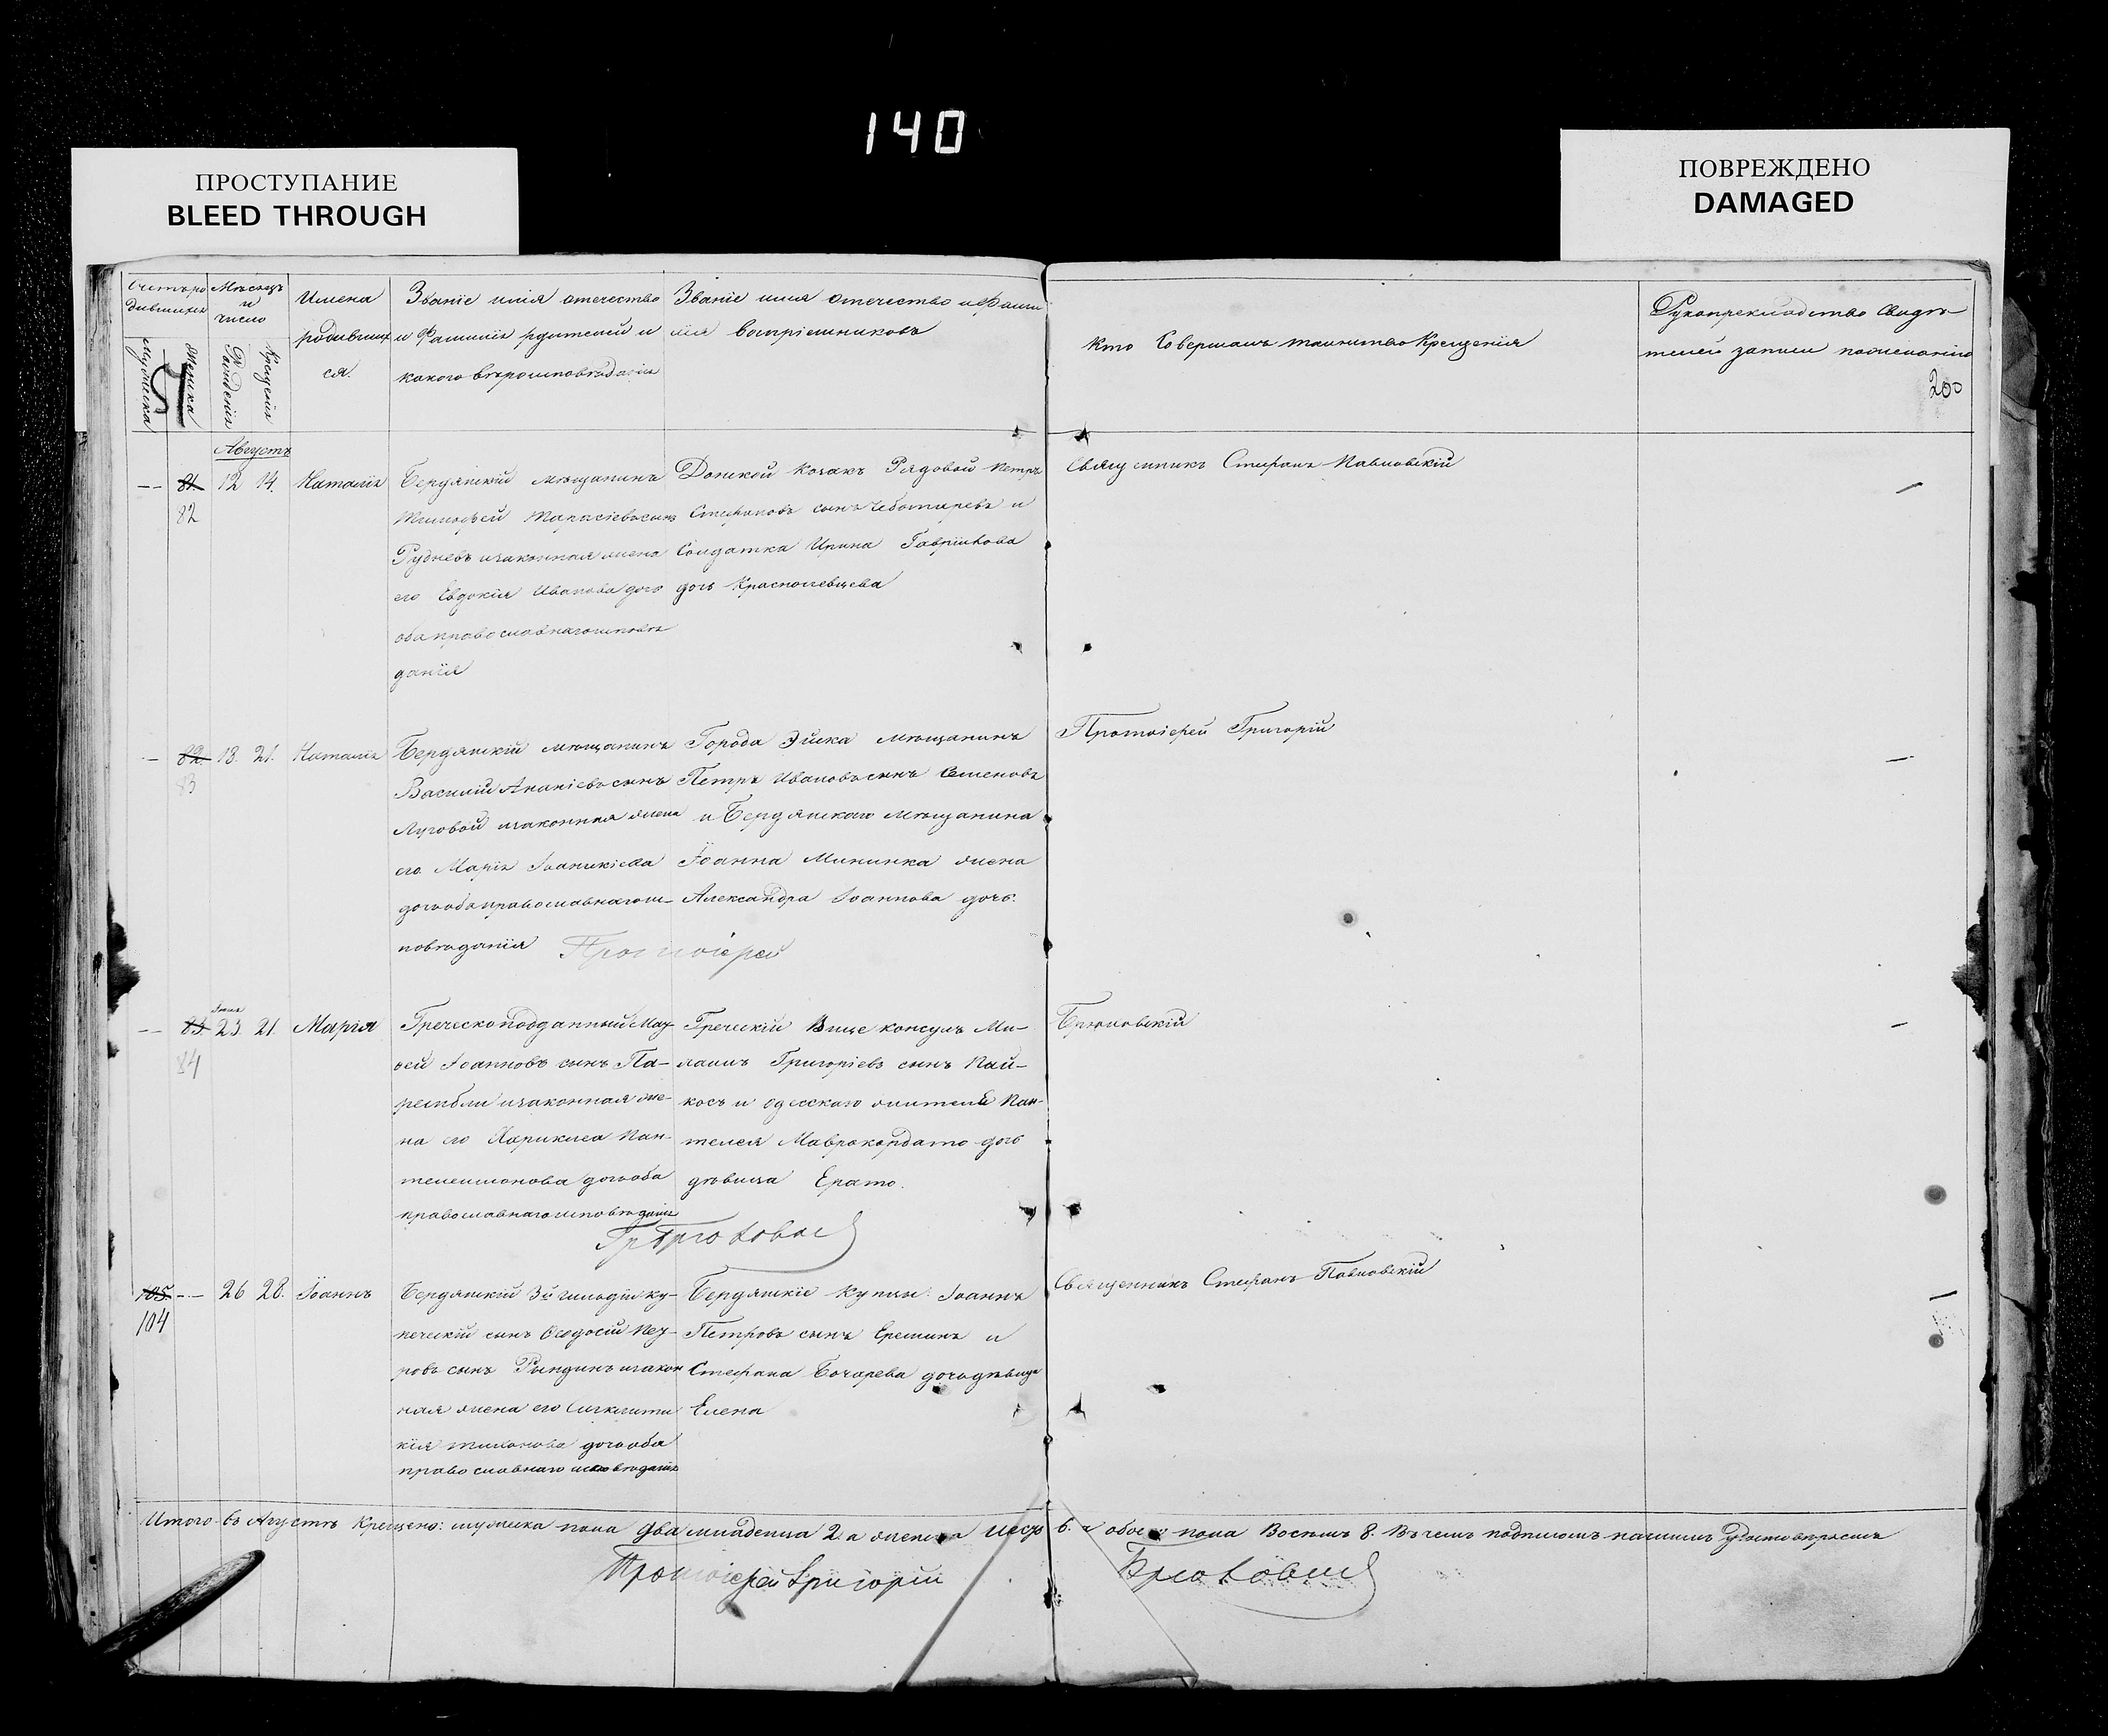 140
ПРОСТУПАНИЕ
BLEED THROUGH
ПОВРЕЖДЕНО
DAMAGED
Мѣсяцъ
и
число
Имена
родивших
ся.
Званіе имя отечество
и Фамилія родителей и
какого вѣроисповѣданія
Званіе имя отечество и Фами
лія воспріемниковъ
Кто Совершалъ таинство Крещенія
Рукоприкладство Свидѣ
телей записи по желанію
200
Мужеска
Женска
Рожденія
Крещенія
Августъ
— 81. 12 14. Наталія
82
Бердянскій мѣщанинъ
Тимофей Тарасіевъ сынъ
Рудневъ и законная жена
его Евдокія Иванова дочь
оба православнаго исповѣ
данія
Донской Козакъ Рядовой Петръ
Стефановъ сынъ Чеботаревъ и
Солдатка Ирина Гавріилова
дочь
Священникъ Стефанъ Павловскій
— 82. 18. 21. Наталія
83
Бердянскій мѣщанинъ
Василій Ананіевъ сынъ
Луговой и законная жена
его Марія Іоаникіева
дочь оба православнаго ис-
повѣданія
Города Эйска мѣщанинъ
Петръ Ивановъ сынъ Семеновъ
и Бердянскаго мѣщанина
Іоанна Мининка жена
Александра Іоаннова дочь.
Протоіерей
Протоіерей Григорій
— 83. 23. 21. Марія
84
Греческоподданный Мат-
фей Іоанновъ сынъ Па-
и законная же-
на его Хариклеа Пан-
телеимонова дочь оба
православнаго исповѣданія
Греческій Вице консулъ Ми-
Григоріевъ сынъ Пай-
косъ и одесскаго жителя Пан-
телея Маврокордато дочь
дѣвица Ерато.
105. — 26 28. Іоаннъ
104
Бердянскій 3й гильдіи ку-
печескій сынъ Ѳеодосій Пет-
ровъ сынъ Рындинъ и закон
ная жена его Синклити
кія дочь оба
православнаго исповѣданія
Бердянскіе купцы: Іоаннъ
Петровъ сынъ Ереминъ и
Стефана Бочарева дочь дѣвица
Елена
Священникъ Стефанъ Павловскій
Итого въ Августѣ Крещено: мужеска пола два младенца 2 а женска шесть 6. а обоего пола Восемь 8. Въ чемъ подписомъ нашимъ удостовѣряемъ
Протоіерей Григорій